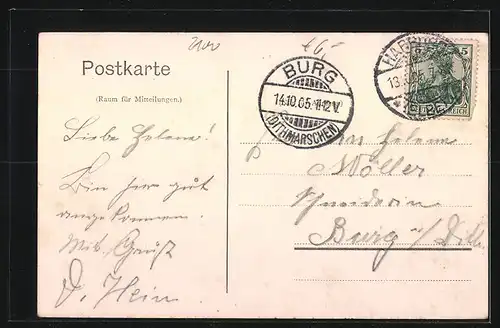 Postkarte
(Raum für Mitteilungen.)
Liebe Helene!
Bin hier gut
angekommen.
Mit Gruß
D. Hein
BURG
14.10.05.11-12V
(DITHMARSCHEN)
HARBURG
13.
(ELBE)
5
REICH
Helene
Möller
Schneiderin
Burg i/Dith.